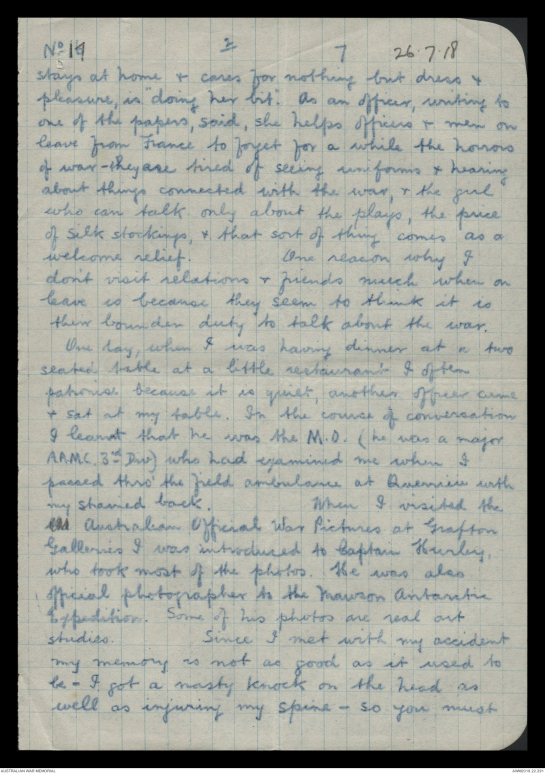 No 14 2 7 26.7.18
stays at home + cares for nothing but dress +
pleasure, is "doing her bit". As an officer, writing to
one of the papers, said, she helps officers + men on
leave from France to forget for a while the horrors
of war - they are tired of seeing uniforms + hearing
about things connected with the war, + the girl
who can talk only about the plays, the price
of silk stockings, + that sort of thing comes as a
welcome relief. One reason why I
don't visit relations + friends much when on
leave is because they seem to think it is
their bounden duty to talk about the war.
One day, when I was having dinner at a two
seated table at a little restaurant I often
patronise because it is quiet, another officer came
+ sat at my table. In the course of conversation
I learnt that he was the M.O. (he was a major
AAMC. 3rd Div) who had examined me when I
passed thro' the field ambulance at Querrieu with
my strained back. When I visited the
Australian Official War Pictures at Grafton
Galleries I was introduced to Captain Hurley,
who took most of the photos. He was also
official photographer to the Mawson Antarctic
Expedition. Some of his photos are real art
studies. Since I met with my accident
my memory is not as good as it used to
be - I got a nasty knock on the head as
well as injuring my spine - so you must
AUSTRALIAN WAR MEMORIAL